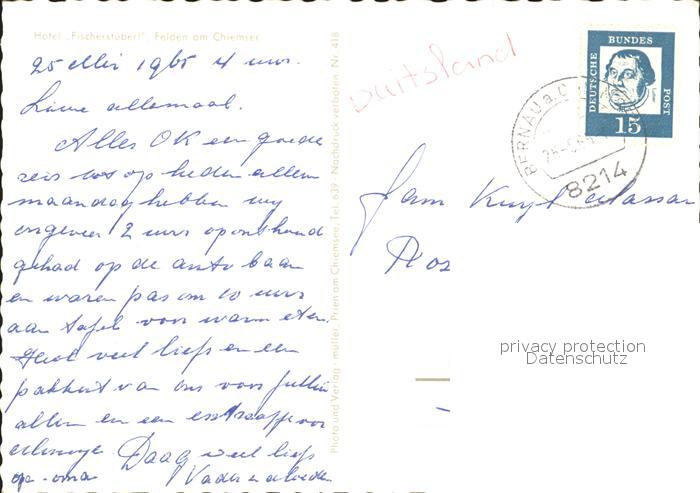 Hotel „Fischerstüberl“, Felden am Chiemsee
25 Mei 1965 4 uur.
Lieve allemaal.
Alles OK een goede
reis tot op heden alleen
maandag hebben wij
ongeveer 2 uur oponthoud
gehad op de auto baan
en waren pas om 10 uur
aan tafel voor warm eten.
Heel veel liefs en een
pakkerd van ons voor jullie
allen en een extraatje voor
Daag veel liefs
opa - oma Vader en
Photo und Verlag: müller, Prien am Chiemsee, Tel. 639. Nachdruck verboten. Nr. 418
Duitsland
DEUTSCHE
BUNDES
POST
15
BERNAU a. C
8214
Fam
Ros
privacy protection
Datenschutz